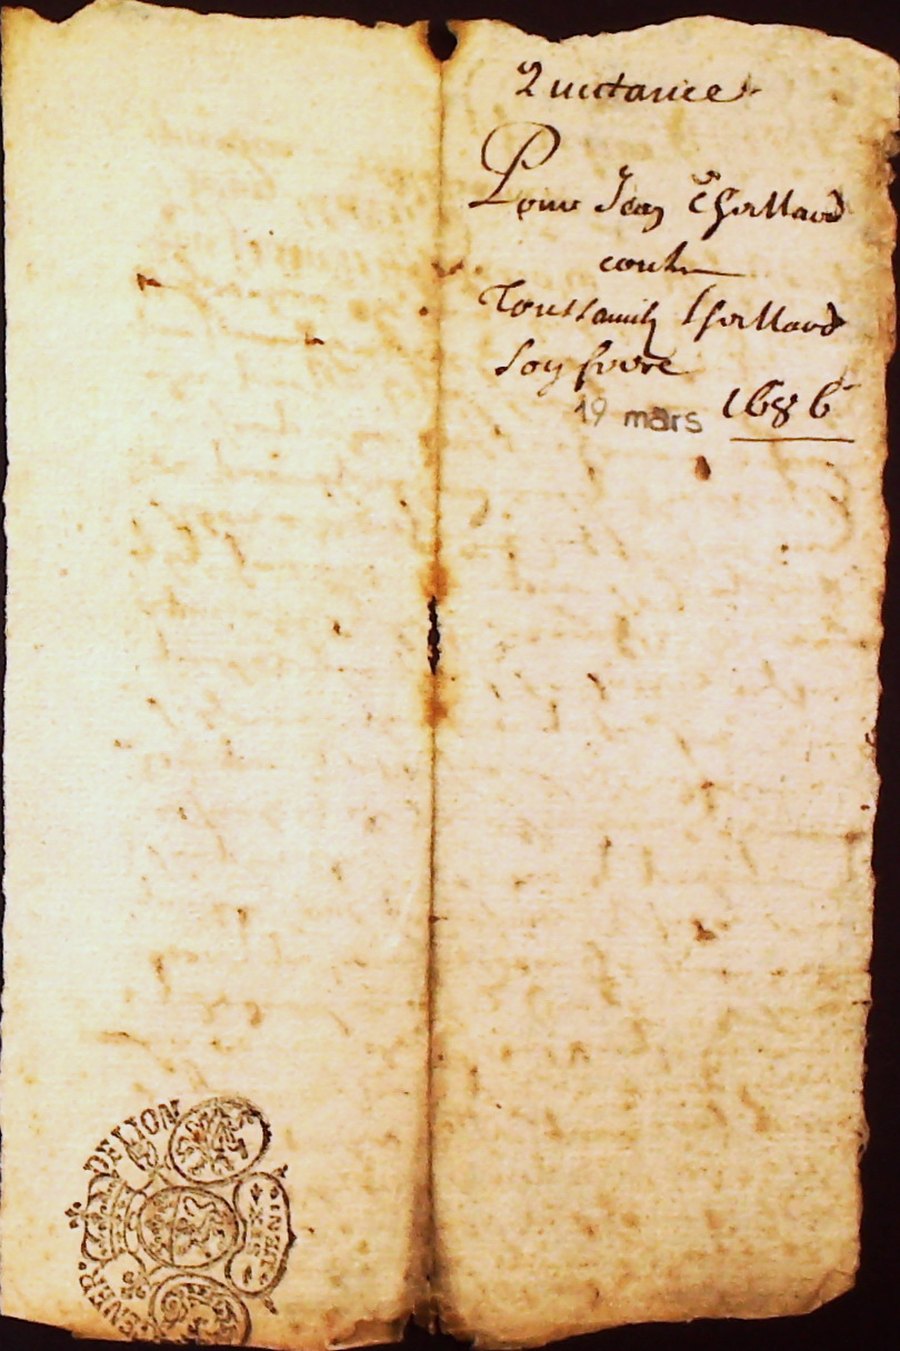 Quictance
Pour Jean Thollard
contre
Toussainctz Thollard
Son frere
19 mars 1686
DE LION
GENER.
SIX
DENIE.